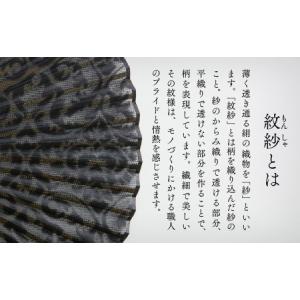 紋紗とは
もんしゃ
薄く透き通る絹の織物を「紗」といい
ます。「紋紗」とは柄を織り込んだ紗の
こと。紗のからみ織りで透ける部分、
平織りで透けない部分を作ることで、
柄を表現しています。繊細で美しい
その紋様は、モノづくりにかける職人
のプライドと情熱を感じさせます。